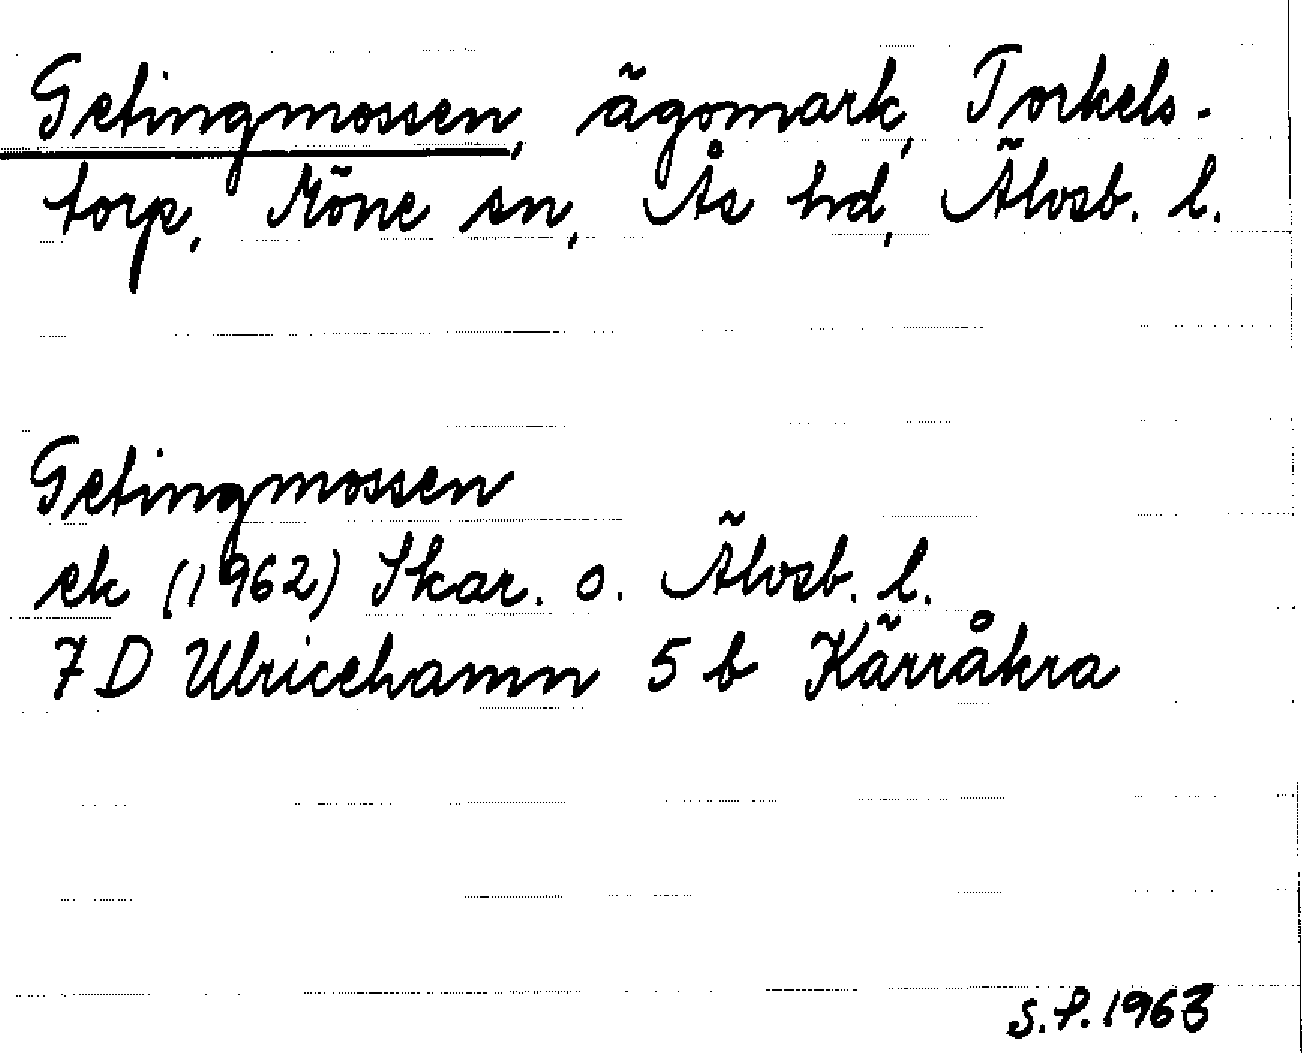 Getingmossen, ägomark, Torkels-
torp, Möne sn, Ås hd, Älvsb. l.
Getingmossen
ek (1962) Skar. o. Älvsb. l.
7 D Ulricehamn 5 b Kärråkra
S.P. 1963